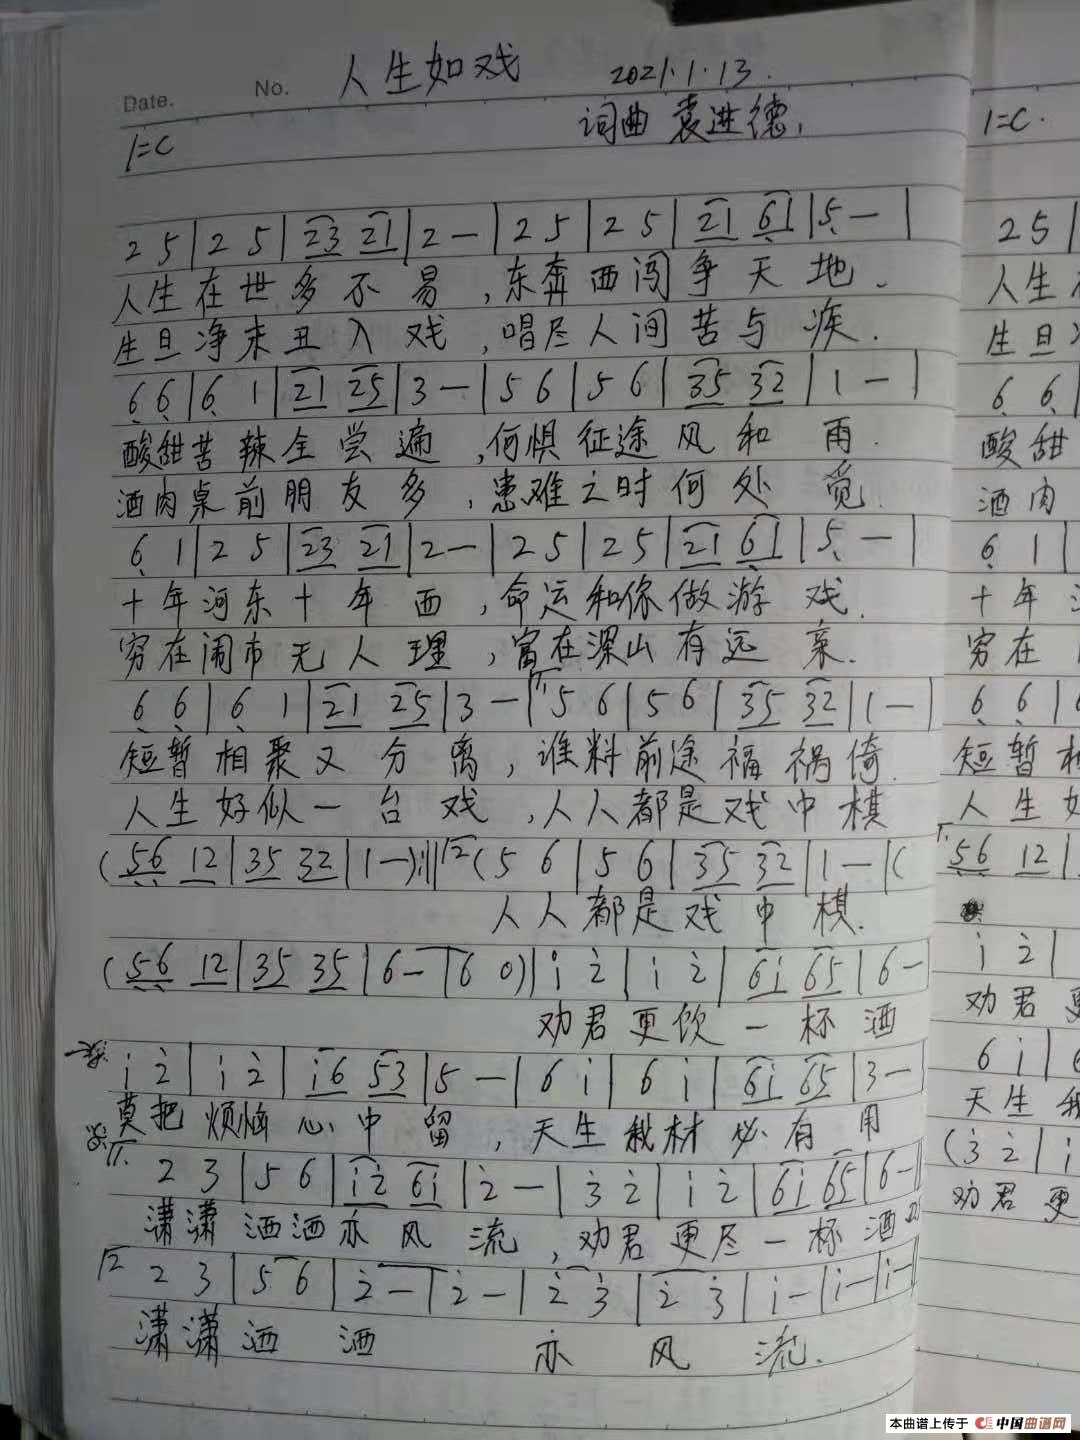 Date.
No.
人生如戏
2021.1.13.
1=C
词曲 袁进德
2 5 | 2 5 | 23 21 | 2 — | 2 5 | 2 5 | 21 61 | 5 — |
人生在世多不易,东奔西闯争天地.
生旦净末丑入戏,唱尽人间苦与疾.
6 6 | 6 1 | 21 25 | 3 — | 5 6 | 5 6 | 35 32 | 1 — |
酸甜苦辣全尝遍,何惧征途风和雨.
酒肉桌前朋友多,患难之时何处觅.
6 1 | 2 5 | 23 21 | 2 — | 2 5 | 2 5 | 21 61 | 5 — |
十年河东十年西,命运和你做游戏.
穷在闹市无人理,富在深山有远亲.
6 6 | 6 1 | 21 25 | 3 — | 1. 5 6 | 5 6 | 35 32 | 1 — |
短暂相聚又分离,谁料前途福祸倚.
人生好似一台戏,人人都是戏中棋
(56 12 | 35 32 | 1 —) :|| 2 (5 6 | 5 6 | 35 32 | 1 — | (
人人都是戏中棋.
(56 12 | 35 35 | 6 — | 6 0) | i 2 | i 2 | 6i 65 | 6 —
劝君更饮一杯酒
i 2 | i 2 | i6 53 | 5 — | 6 i | 6 i | 6i 65 | 3 —
莫把烦恼心中留,天生我材必有用
1. 2 3 | 5 6 | i2 6i | 2 — | 3 2 | i 2 | 6i 65 | 6 —
潇潇洒洒亦风流,劝君更尽一杯酒
2 2 3 | 5 6 | 2 — | 2 — | 2 3 | 2 3 | i — | i — | i —
潇潇洒洒亦风流.
1=C.
2 5 |
人生
生旦
6 6 |
酸甜
酒肉
6 1 |
十年
穷在
6 6 |
短暂
人生
1. 56 12 |
i 2 |
劝君
6 i |
天生
(3 2 | i
劝君更
本曲谱上传于 中国曲谱网